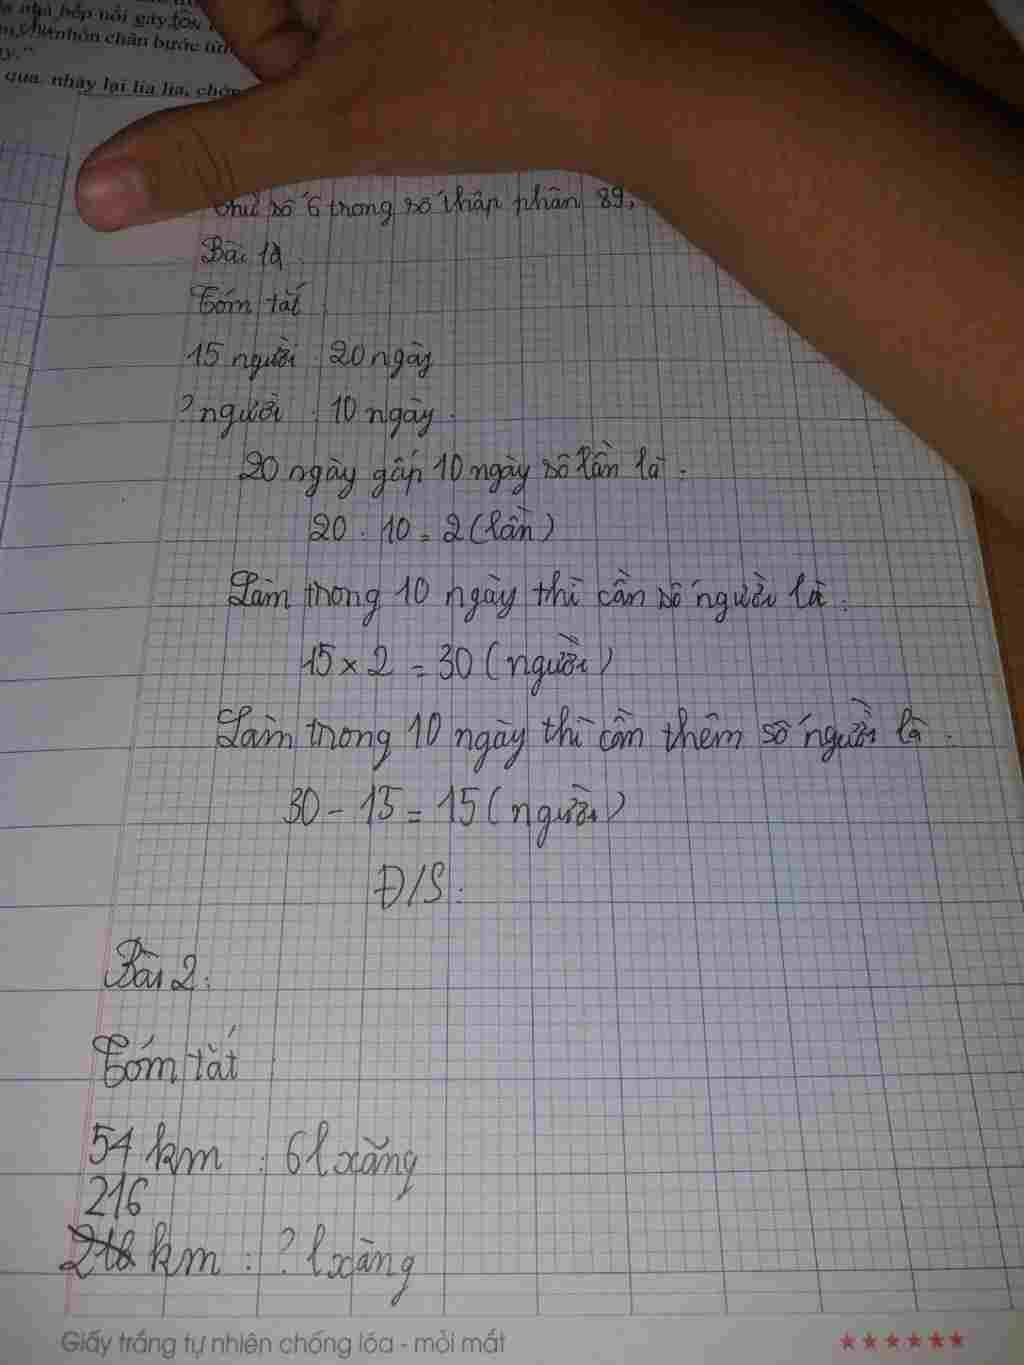 nhà bếp nổi gáy
nhón chân bước
ấy."
qua, nhảy lại lia lia,
Chữ số 6 trong số thập phân 89,
Bài 1
Tóm tắt
15 người : 20 ngày
? người : 10 ngày.
20 ngày gấp 10 ngày số lần là :
20 : 10 = 2 (lần)
Làm trong 10 ngày thì cần số người là :
15 x 2 = 30 (người)
Làm trong 10 ngày thì cần thêm số người là :
30 - 15 = 15 (người)
Đ/S :
Bài 2 :
Tóm tắt
54 km : 6l xăng
216
km : ? l xăng
Giấy trắng tự nhiên chống lóa - mỏi mắt